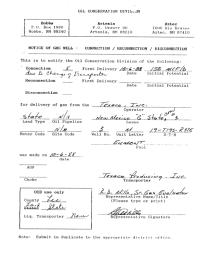 OIL CONSERVATION DIVISION
Hobbs
P.O. Box 1980
Hobbs, NM 88240
Artesia
P.O. Drawer DD
Artesia, NM 88210
Aztec
1000 Rio Brazos
Aztec, NM 87410
NOTICE OF GAS WELL CONNECTION / RECONNECTION / DISCONNECTION
This is to notify the Oil Conservation Division of the following:
Connection X First Delivery 10-6-88
Date Initial Potential
due to Change of Transporter
Reconnection First Delivery
Date Initial Potential
Disconnection
for delivery of gas from the Texaco, Inc.
Operator
State N/A New Mexico State
Lease
Land Type Oil Pipeline
N/A
Meter Code Site Code Well No. Unit Letter S-T-R
Eumont
Pool
was made on 10-6-88
date
AOF
Choke
Texaco Producing Inc.
Transporter
OCD use only
County Lea
Land Type State
Liq. Transporter
Representative Name
(Please type or print)
Representative Signature
Note: Submit in Duplicate to the appropriate district office.